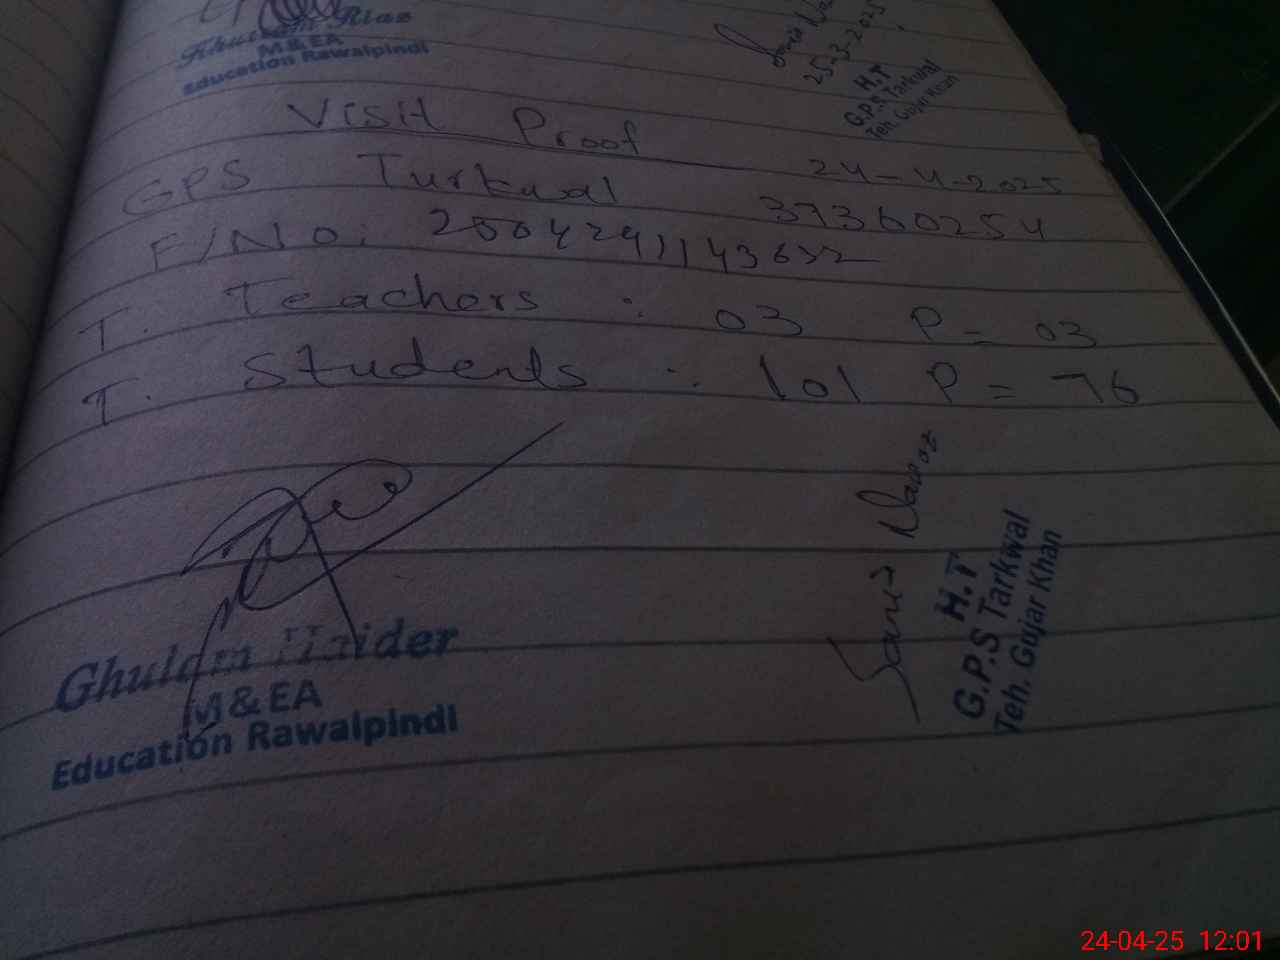 Riaz
M & EA
Education Rawalpindi
25-3-2025
H.T
G.P.S Tarkwal
Teh. Gujar Khan
Visit Proof
24-4-2025
GPS Turkwal 37360254
F/No:
T. Teachers : 03 P = 03
T. Students : 101 P = 76
Ghulam Haider
M & EA
Education Rawalpindi
H.T
G.P.S Tarkwal
Teh. Gujar Khan
24-04-25 12:01